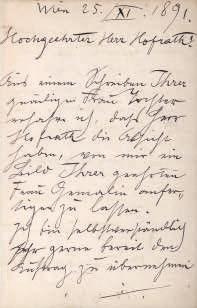 Wien 25. XI. 1891.
Hochgeehrter Herr Hofrath!
Aus einem Schreiben Ihrer
gnädigen Frau Tochter
erfahre ich, dass Herr
Hofrath die Absicht
haben, von mir ein
Bild Ihrer geehrten
Frau Gemalin anfer-
tigen zu lassen.
Ich bin selbstverständlich
sehr gerne bereit den
Auftrag zu übernehmen